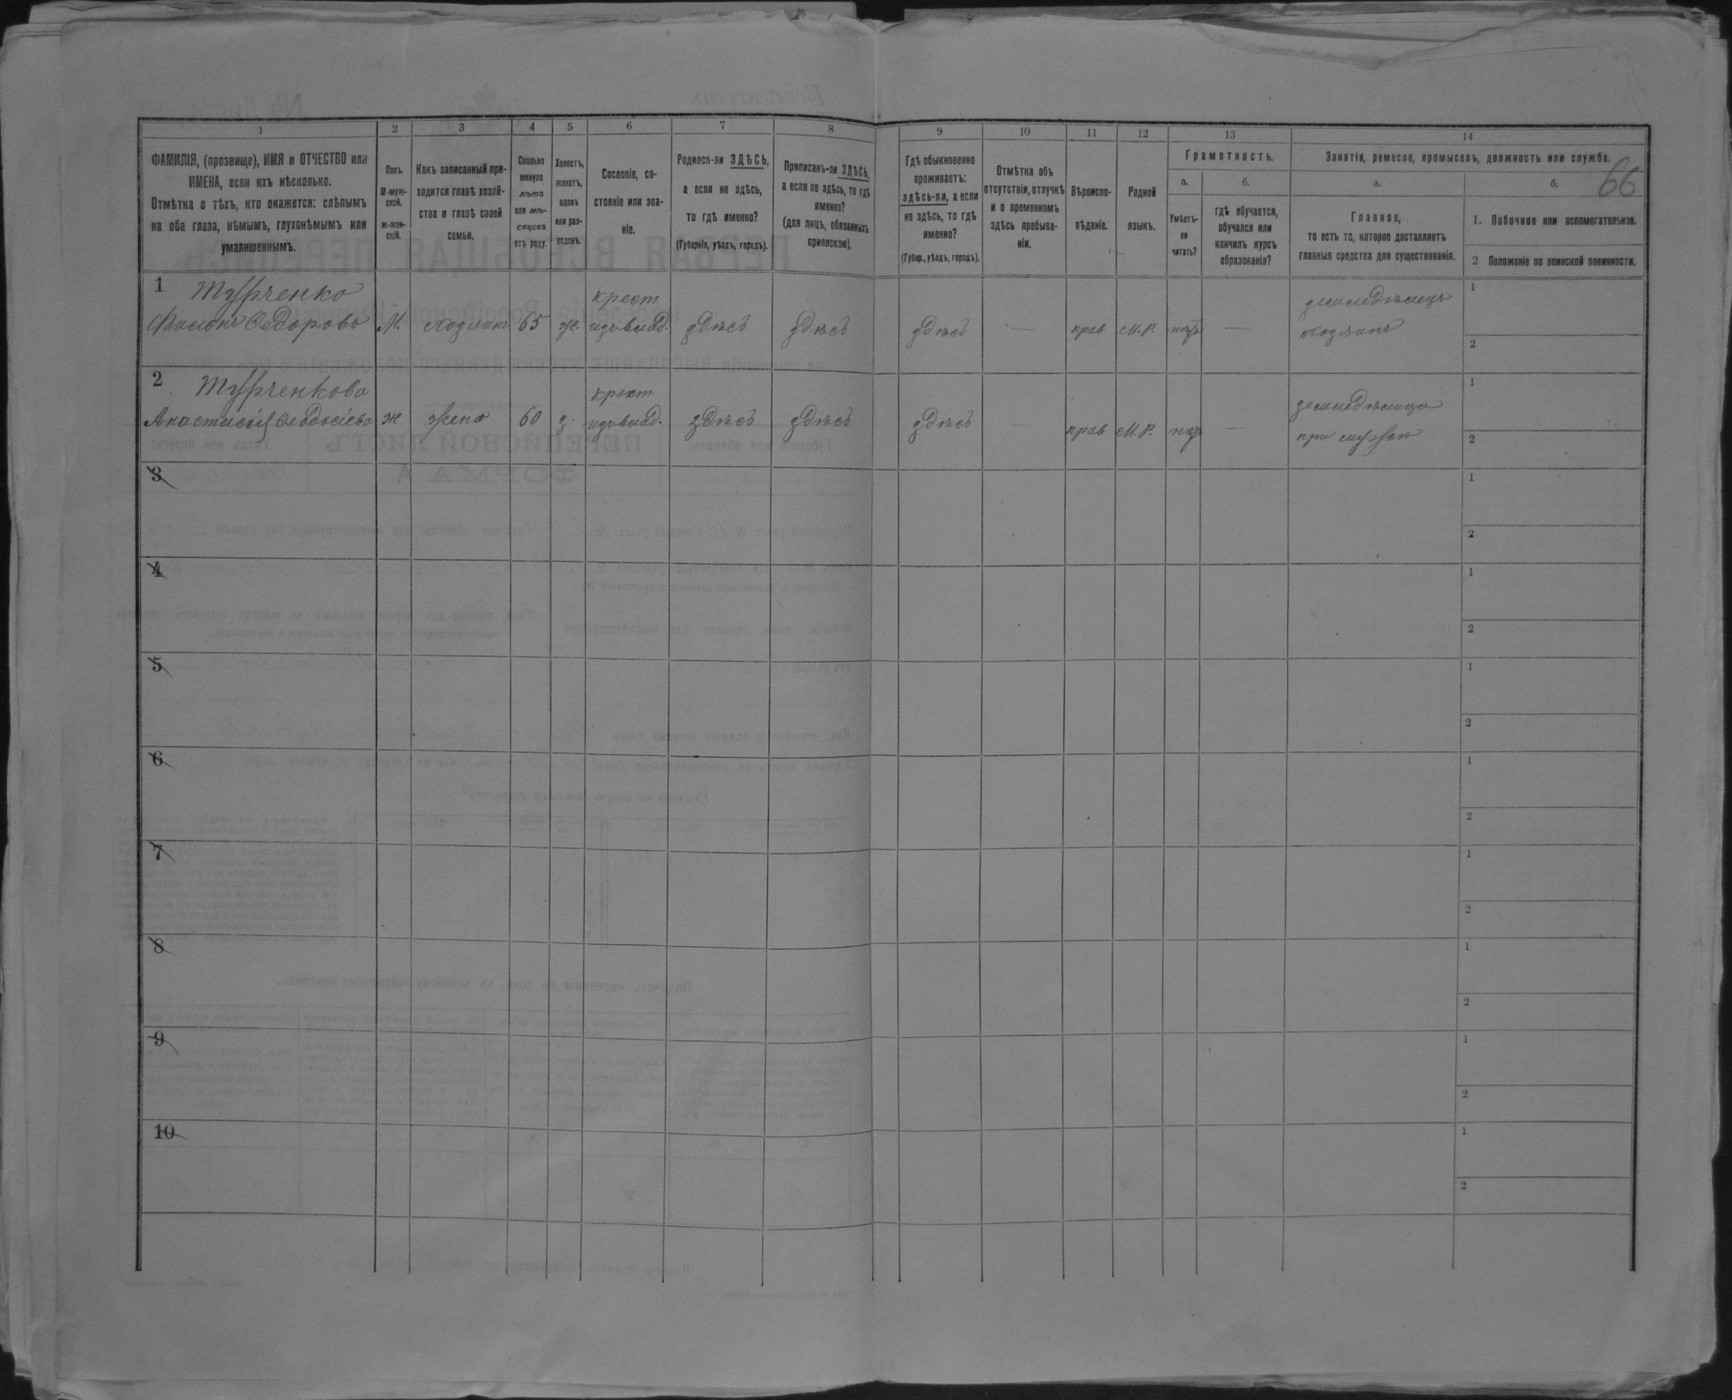 1 2 3 4 5 6 7 8 9 10 11 12 13 14
ФАМИЛІЯ, (прозвище), ИМЯ и ОТЧЕСТВО или
ИМЕНА, если ихъ нѣсколько.
Отмѣтка о тѣхъ, кто окажется: слѣпымъ
на оба глаза, нѣмымъ, глухонѣмымъ или
умалишеннымъ.
Полъ.
М-муж-
ской.
ж-жен-
скій.
Какъ записанный при-
ходится главѣ хозяй-
ства и главѣ своей
семьи.
Сколько
минуло
лѣтъ
или мѣ-
сяцевъ
отъ роду.
Холостъ,
женатъ,
вдовъ
или раз-
веденъ.
Сословіе, со-
стояніе или зва-
ніе.
Родился-ли ЗДѢСЬ,
а если не здѣсь,
то гдѣ именно?
(Губернія, уѣздъ, городъ).
Приписанъ-ли ЗДѢСЬ,
а если не здѣсь, то гдѣ
именно?
(для лицъ, обязанныхъ
припискою).
Гдѣ обыкновенно
проживаетъ:
здѣсь-ли, а если
не здѣсь, то гдѣ
именно?
(Губер., уѣздъ, городъ).
Отмѣтка объ
отсутствіи, отлучкѣ
и о временномъ
здѣсь пребыва-
ніи.
Вѣроиспо-
вѣданіе.
Родной
языкъ.
Грамотность.
а. б.
Умѣетъ-
ли
читать?
гдѣ обучается,
обучался или
кончилъ курсъ
образованія?
Занятія, ремесло, промыселъ, должность или служба.
66
а. б.
Главное,
то есть то, которое доставляетъ
главныя средства для существованія.
1. Побочное или вспомогательное.
2 Положеніе по воинской повинности.
1 Турченко крест земледѣлецъ 1
Федоровъ М. хозяинъ 65 ж. здѣсь здѣсь здѣсь — прав М.Р. — хозяинъ
2
2 Турченкова крест земледѣлица 1
Анастасія Ж жена 60 з. здѣсь здѣсь здѣсь — прав М.Р. — при
2
3 1
2
4 1
2
5 1
2
6 1
2
7 1
2
8 1
2
9 1
2
10 1
2